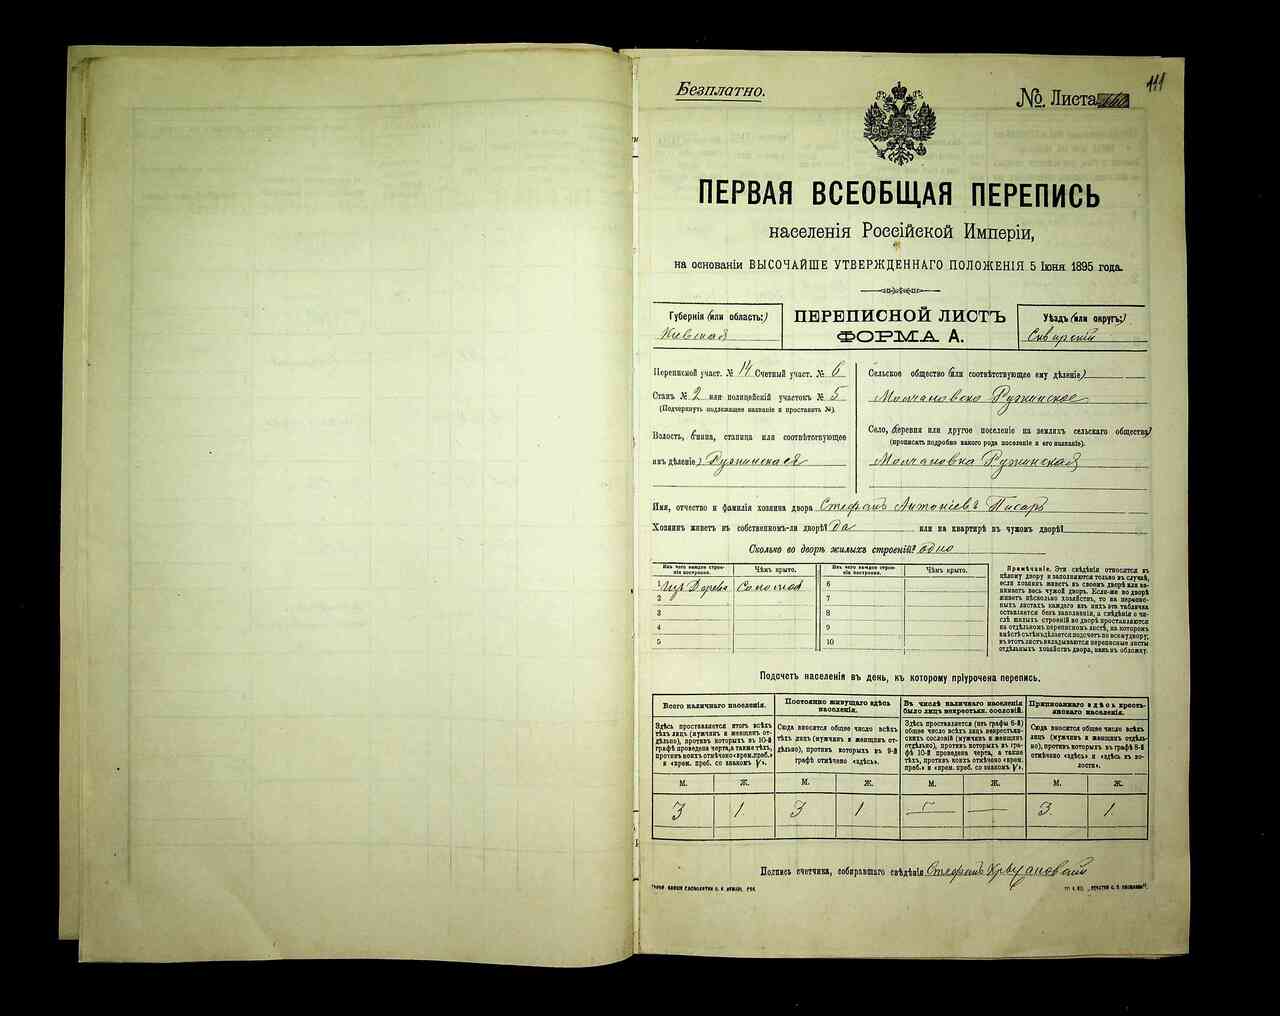 111
Безплатно.
№ Листа
ПЕРВАЯ ВСЕОБЩАЯ ПЕРЕПИСЬ
населенія Россійской Имперіи,
на основаніи ВЫСОЧАЙШЕ УТВЕРЖДЕННАГО ПОЛОЖЕНІЯ 5 Іюня 1895 года.
Губернія (или область:)
Кіевская
ПЕРЕПИСНОЙ ЛИСТЪ
ФОРМА А.
Уѣздъ (или округъ:)
Сквирскій
Переписной участ. № 14 Счетный участ. № 6
Станъ № 2 или полицейскій участокъ № 5
(Подчеркнуть надлежащее названіе и проставить №).
Волость, гмина, станица или соотвѣтствующее
имъ дѣленіе) Ружинская
Сельское общество (или соотвѣтствующее ему дѣленіе)
Молчановско Ружинское
Село, деревня или другое поселеніе на земляхъ сельскаго общества)
(прописать подробно какого рода поселеніе и его названіе).
Молчановка Ружинская
Имя, отчество и фамилія хозяина двора Стефанъ Антоніевъ Писаръ
Хозяинъ живетъ въ собственномъ-ли дворѣ? да или на квартирѣ въ чужомъ дворѣ?
Сколько во дворѣ жилыхъ строеній? одно
Изъ чего каждое строеніе построено.
Чѣмъ крыто.
Изъ чего каждое строеніе построено.
Чѣмъ крыто.
Изъ Дерева Соломой
2
3
4
5
6
7
8
9
10
Примѣчаніе. Эти свѣдѣнія относятся къ
цѣлому двору и заполняются только въ случаѣ,
если хозяинъ живетъ въ своемъ дворѣ или занимаетъ весь чужой дворъ. Если-же во дворѣ
живетъ нѣсколько хозяйствъ, то на переписныхъ листахъ каждаго изъ нихъ эта табличка
оставляется безъ заполненія, а свѣдѣнія о числѣ жилыхъ строеній во дворѣ проставляются
на отдѣльномъ переписномъ листѣ, на которомъ
вмѣстѣ съ тѣмъ дѣлается подсчетъ по всему двору;
въ этотъ листъ вкладываются переписные листы
отдѣльныхъ хозяйствъ двора, какъ въ обложку.
Подсчетъ населенія въ день, къ которому пріурочена перепись.
Всего наличнаго населенія.
Здѣсь проставляется итогъ всѣхъ
тѣхъ лицъ (мужчинъ и женщинъ отдѣльно), противъ которыхъ въ 10-й
графѣ проведена черта, а также тѣхъ,
противъ коихъ отмѣчено «врем. преб.»
и «врем. преб. со знакомъ V».
Постоянно живущаго здѣсь
населенія.
Сюда вносится общее число всѣхъ
тѣхъ лицъ (мужчинъ и женщинъ отдѣльно), противъ которыхъ въ 9-й
графѣ отмѣчено «здѣсь».
Въ числѣ наличнаго населенія
было лицъ некрестьян. сословій.
Здѣсь проставляется (изъ графы 6-й)
общее число всѣхъ лицъ некрестьянскихъ сословій (мужчинъ и женщинъ
отдѣльно), противъ которыхъ въ графѣ 10-й проведена черта, а также
тѣхъ, противъ коихъ отмѣчено «врем.
преб.» и «врем. преб. со знакомъ V».
Приписаннаго здѣсь крестьянскаго населенія.
Сюда вносится общее число всѣхъ
лицъ (мужчинъ и женщинъ отдѣльно), противъ которыхъ въ графѣ 8-й
отмѣчено «здѣсь» и «здѣсь въ волости».
М. Ж. М. Ж. М. Ж. М. Ж.
3 1. 3 1 — — 3. 1.
Подпись счетчика, собиравшаго свѣдѣнія Стефанъ